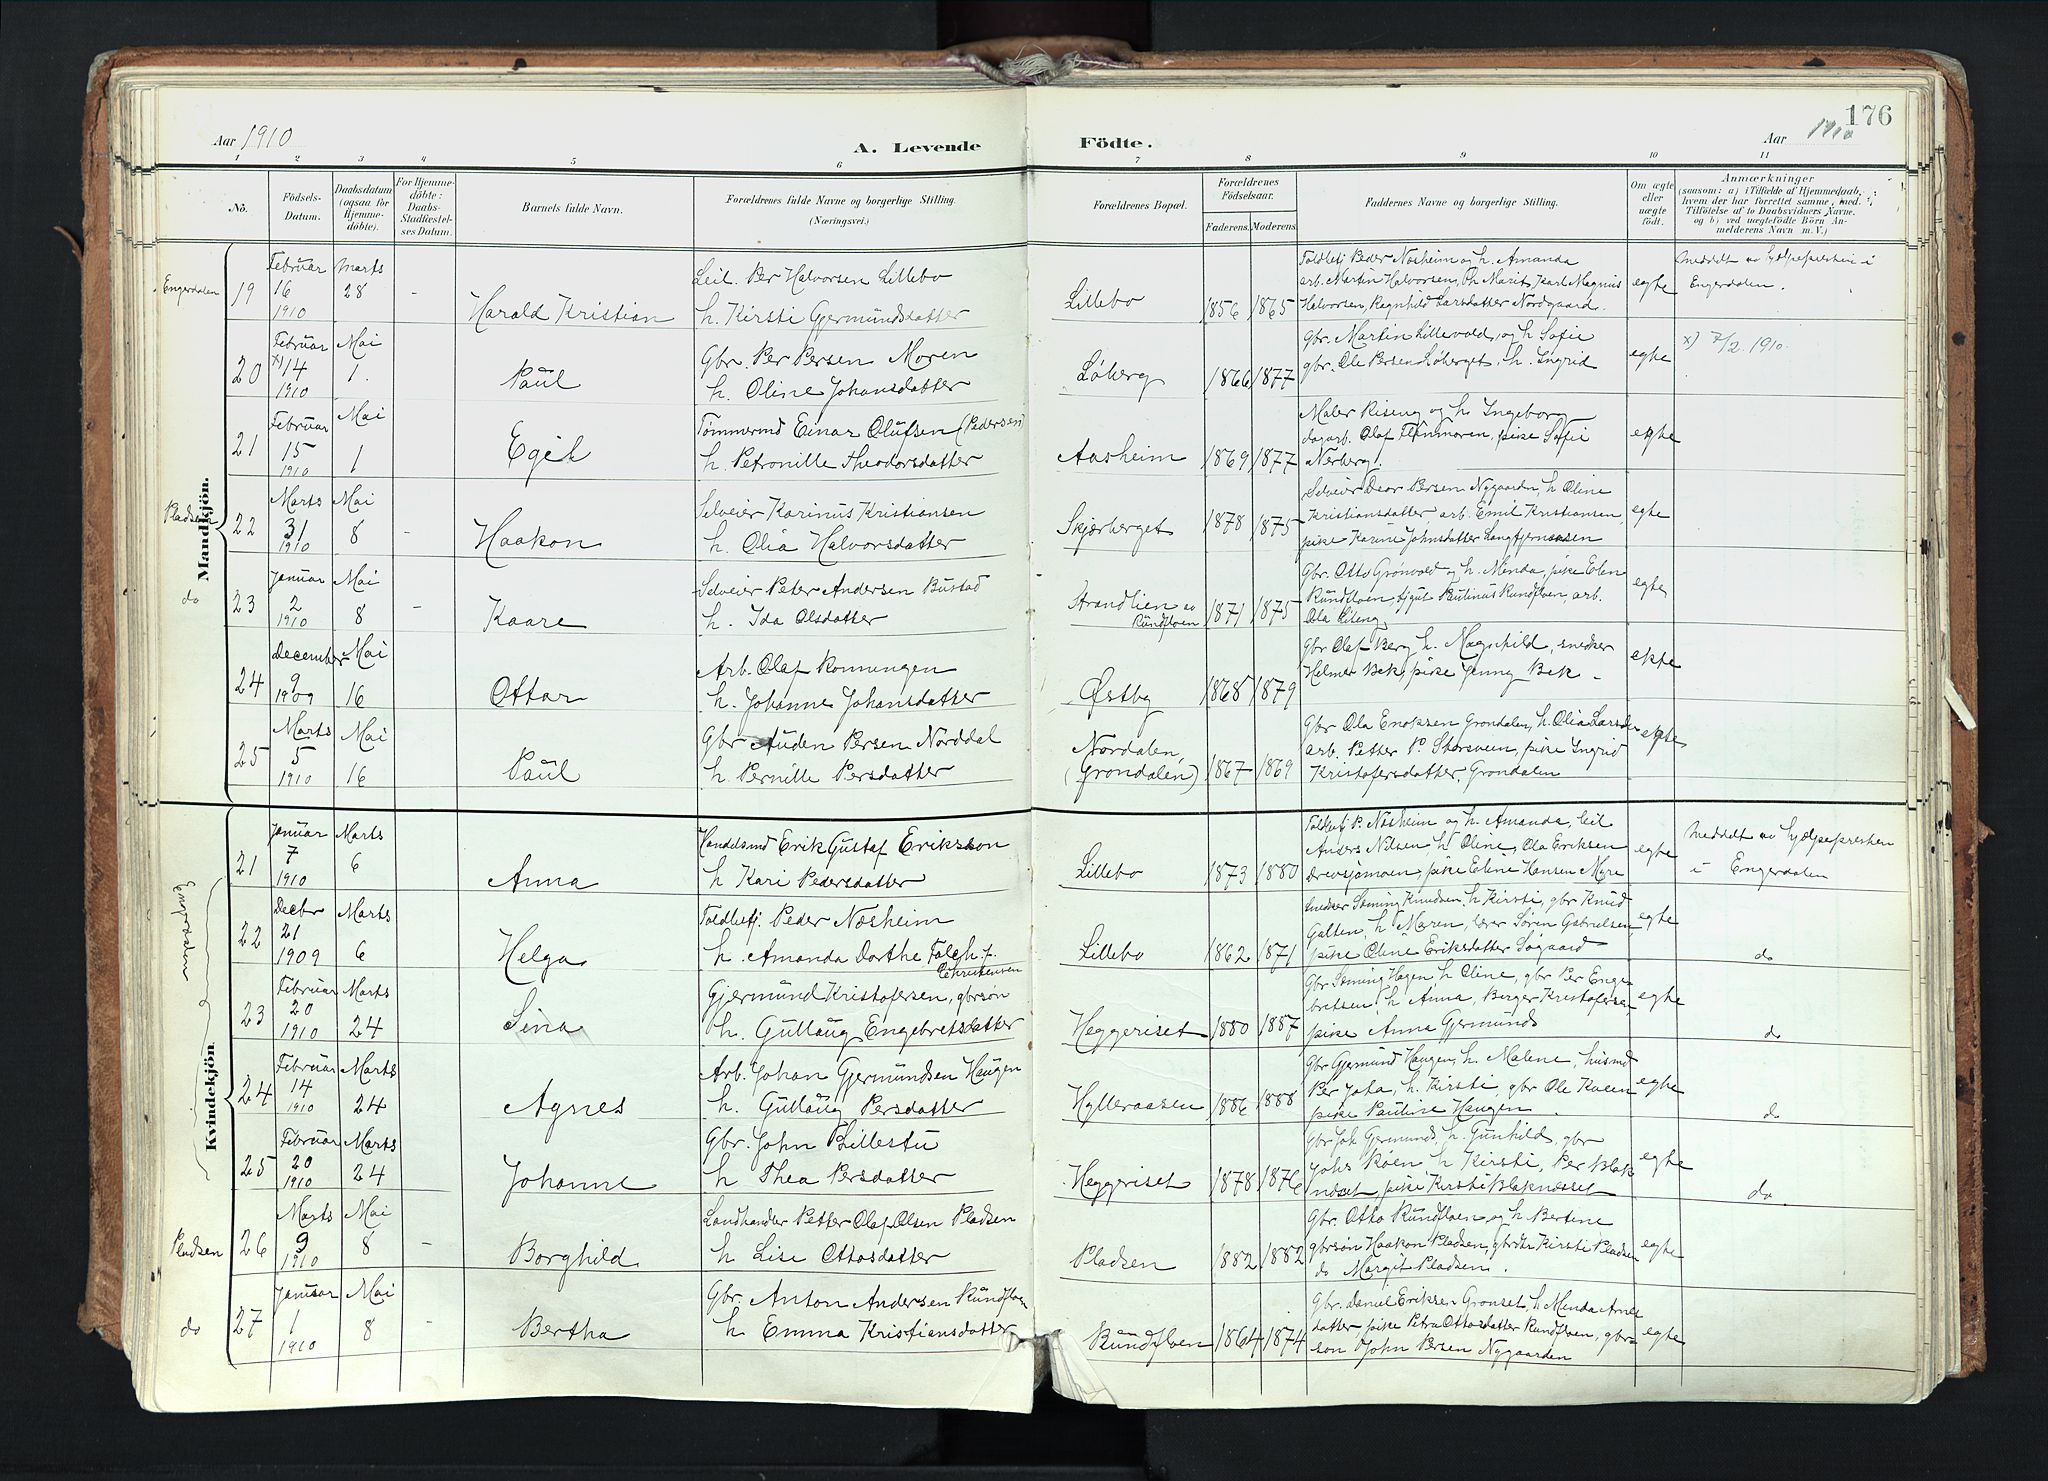 176
Aar 1910
A. Levende
Födte.
Aar 1910
1 2 3 4 5 6 7 8 9 10 11
No.
Födsels-Datum.
Daabsdatum (ogsaa for Hjemmedöbte).
For Hjemmedöbte: Daabs-Stadfæstelses Datum.
Barnets fulde Navn.
Forældrenes fulde Navne og borgerlige Stilling. (Næringsvei.)
Forældrenes Bopæl.
Forældrenes Födselsaar.
Faderens. Moderens.
Faddernes Navne og borgerlige Stilling.
Om ægte eller uægte födt.
Anmærkninger
(saasom: a) i Tilfælde af Hjemmedaab, hvem der har forrettet samme, med Tilföielse af to Daabsvidners Navne. og b) ved uægtefödte Börn Anmelderens Navn m. V.)
Mandkjön.
Engerdalen
19 Februar 16 1910 Marts 28 - Harald Kristian
Leil. Per Halvorsen Lillebo
h. Kirsti Gjermundsdatter
Lillebo 1856 1865
Toldbetj Peder Næsheim og h. Amanda
arb. Martin Halvorsen, h. Marit, Karl Magnus
Halvorsen, Ragnhild Larsdatter Nordgaard.
egte
Meddelt av hjelpepresten i
Engerdalen.
20 Februar x) 14 1910 Mai 1. Paul
Gbr. Per Persen Moren
h. Oline Johansdatter
Løberg 1866 1877
Gbr. Martin Lillevold, og h. Sofie
gbr. Ole Persen Løberget, h. Ingrid
egte
x) 7/2. 1910.
21 Februar 15 1910 Mai 1 Egil
Tömmermd Einar Olufsen (Pedersen)
h. Petronille Theodorsdatter
Aasheim 1869 1877
Maler Riseng og h. Ingeborg
dagarb. Olaf Flenmoren, pike Sofie
Nerberg.
ekte
Pladsen
22 Marts 31 1910 Mai 8 - Haakon
Selveier Karinus Kristiansen
h. Olia Halvorsdatter
Skjærberget 1878 1875
Selveier Peder Persen Nygaarden, h. Oline
Kristiansdatter, arb. Emil Kristiansen,
pike Karine Johnsdatter
egte
do
23 Januar 2 1910 Mai 8 - Kaare
Selveier Peter Andersen Bustad
h. Ida Olsdatter
Strandlien av
Rundfloen
1871 1875
Gbr. Otto Grønvold og h. Minda, pike Elen
Rundfloen, Paulinus Rundfloen, arb.
Ola Liteng.
egte
24 December 9 1909 Mai 16 Ottar
Arb. Olaf Ronningen
h. Johanne Johansdatter
Østby 1868 1879
Gbr Olaf Berg h. Magnhild, snedker
Helmer Bek, pike Jenny Bek -
ekte
25 Marts 5 1910 Mai 16 Paul
Gbr Auden Persen Norddal
h. Pernille Persdatter
Nordalen,
(Grondalen)
1867 1869
Gbr Ola Enoksen Grondalen, h. Olia Larsd.
arb. Petter P. Storsveen, pike Ingrid
Kristofersdatter, Grondalen
ekte
Kvindekjön.
Engerdalen
21 Januar 7 1910 Marts 6 Anna
Handelsmd Erik Gustaf Eriksson
h Kari Pedersdatter
Lillebo 1873 1880
Toldbetj P. Næsheim og h. Amanda, leil
Anders Nilsen, h Oline, Ola Eriksen
Drevsjømoen, pike Eline Hansen Myre
egte
Meddelt av hjelpepresten
i Engerdalen
22 Decbr 21 1909 Marts 6 Helga
Toldbetj. Peder Næsheim
h. Amanda Dorthe Falch f.
Christensen
Lillebo 1862 1871
Snedker Knudsen, h Kirsti, gbr Knud
Galten, h Maren, lærer Søren Gabrielsen,
pike Oline Eriksdatter Søgaard
egte
do
23 Februar 20 1910 Marts 24 Lina
Gjermund Kristofersen, gbrsøn
h. Gullaug Engebretsdatter
Heggeriset 1880 1887
Gbr Hagen, h Oline, gbr Per Enge
bretsen, h Anna, Birger Kristofersen
pike Anna Gjermunds
egte
do
24 Februar 14 1910 Marts 24 Agnes
Arb. Johan Gjermundsen Haugen
h. Gullaug Persdatter
Hylleraasen 1886 1888
Gbr Gjermund Haugen, h. Malene, husmd
Per Joha, h. Kirsti, gbr Ole Kveen
pike Pauline Haugen.
egte
do
25 Februar 20 1910 Marts 24 Johanne
Gbr. John Lillestu
h Thea Persdatter
Heggeriset 1878 1876
Gbr Joh Gjermunds, h. Gunhild, gbr
Johs Røen h Kirsti, Per Blak
næset, pike Kirsti Blaknæsset
egte
do
Pladsen
26 Marts 9 1910 Mai 8 - Borghild
Landhandler Petter Olaf Olsen Pladsen
h Lise Ottosdatter
Pladsen 1882 1882
Gbr. Otto Rundfloen og h. Bertine
gbrsøn Haakon Pladsen, gbrdtr Kirsti Pladsen
do Margit Pladsen.
egte
do
27 Januar 1 1910 Mai 8 - Bertha
Gbr. Anton Andersen Rundfloen
h Emma Kristiansdatter
Rundfloen 1864 1874
Gbr. Daniel Eriksen Gronset, h Minda Arnes
datter, pike Petra Ottosdatter Rundfloen, gbr-
søn John Persen Nygaarden
egte